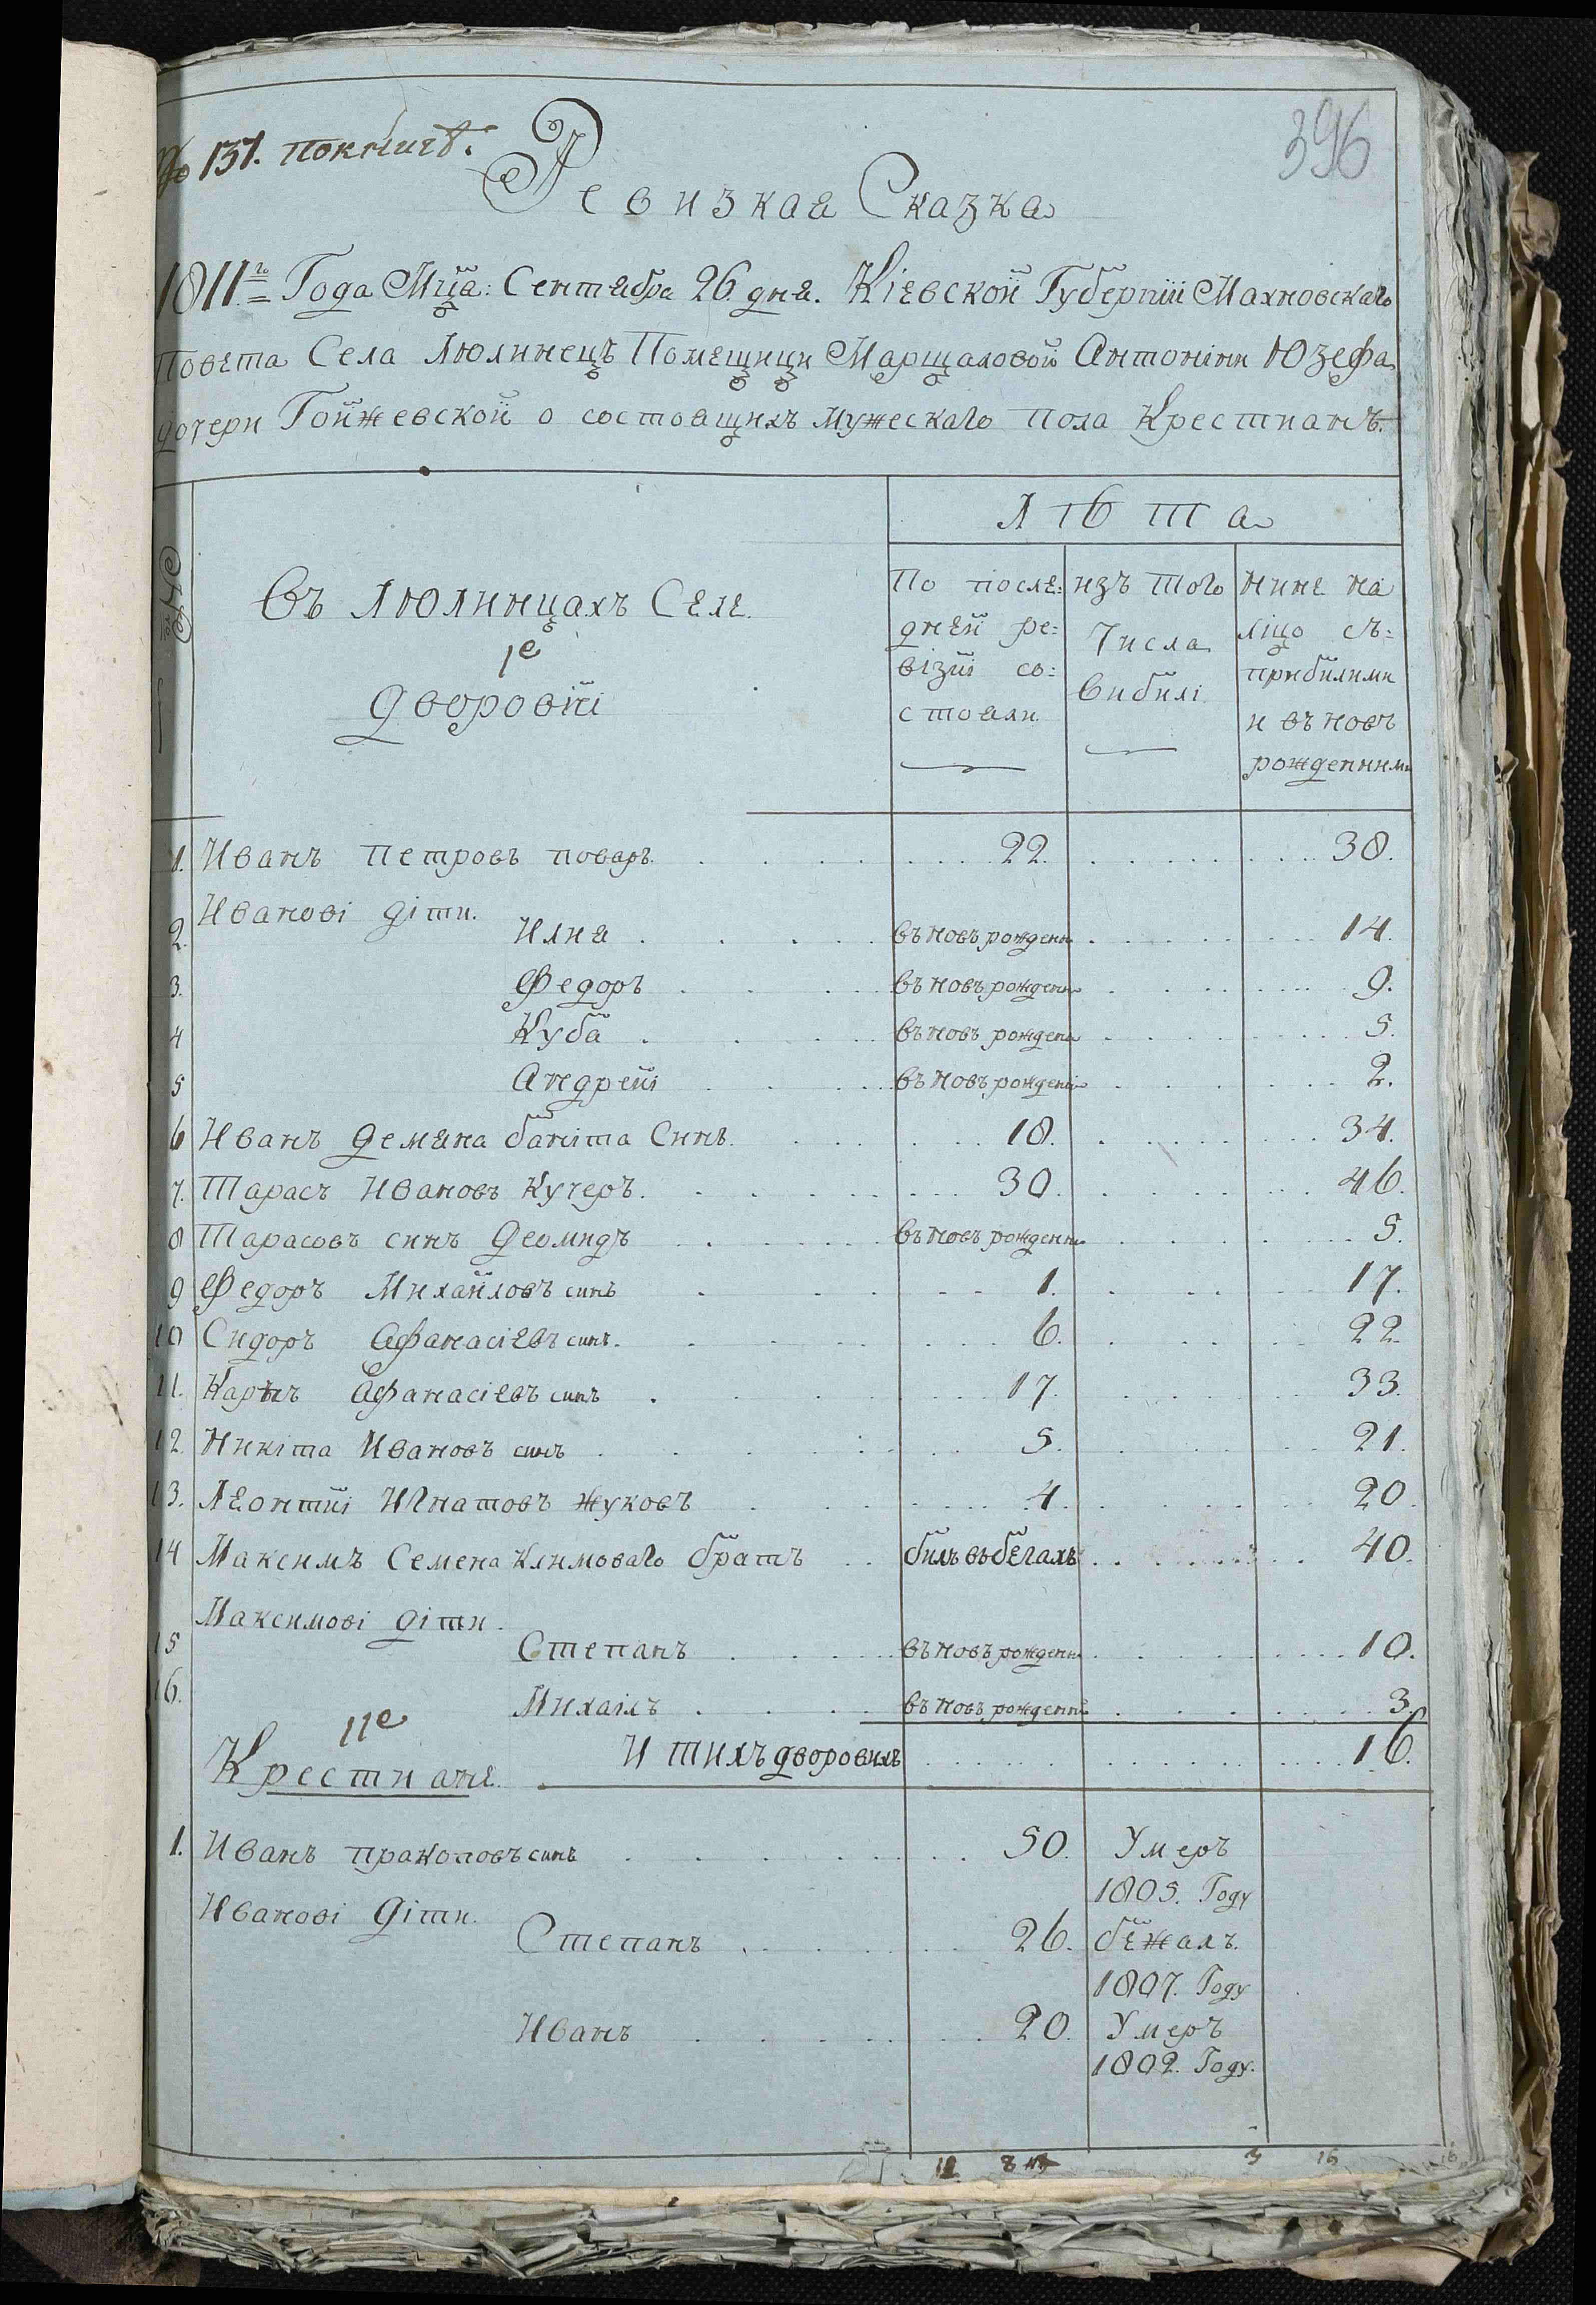 № 137. по книгѣ.
396
Ревизкая Сказка
1811го Года Мца: Сентября 26 дня. Кіевской Губерніи Махновскаго
Повета Села Люлинецъ Помещици Марщаловой Антоніни Юзефа
дочери Гойжевской о состоящихъ мужескаго пола Крестиянъ.
Лѣта
Въ Люлинцахъ Селе
1е
дворовіи
По после:
дней ре:
візіи со:
стояли
изъ того
Числа
вибилі
Нине на
ліцо съ:
прибилими
и въ новъ
рожденними
1. Иванъ Петровъ поваръ. 22. 38.
Иванові діти.
2. Илия въ новъ рожденн 14.
3. Федоръ въ новъ рожденн 9.
4 Куба въ новъ рожденн 5.
5 Андреиі въ новъ рожденн 2.
6 Иванъ Демяна баніта Синъ. 18. 34.
7. Тарасъ Ивановъ Кучеръ. 30. 46.
8 Тарасовъ синъ Деомидъ въ новъ рожденн 5.
9 Федоръ Михайловъ синъ 1. 17.
10 Сидоръ Афанасіевъ синъ. 6. 22.
11. Карпъ Афанасіевъ синъ 17. 33.
12. Никіта Ивановъ синъ 5. 21.
13. Леонтиі Игнатовъ Жуковъ 4. 20.
14 Максимъ Семена Климоваго братъ билъ въ бегахъ 40.
Максимові діти.
15 Степанъ въ новъ рожденн 10.
16. Михаілъ въ новъ рожденн 3.
Итихъ дворовихъ 16.
11е
Крестияне.
1. Иванъ Пракоповъ синъ 50. Умеръ
1805. Году
Иванові діти.
Степанъ 26. бежалъ.
1807. Году
Иванъ 20. Умеръ
1802. Году.
3 16 16